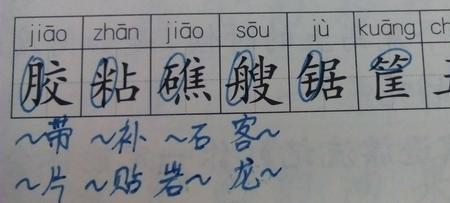 jiāo zhān jiāo sōu jù kuāng
胶 粘 礁 艘 锯 筐
~带 ~补 ~石 客~
~片 ~贴 岩~ 龙~